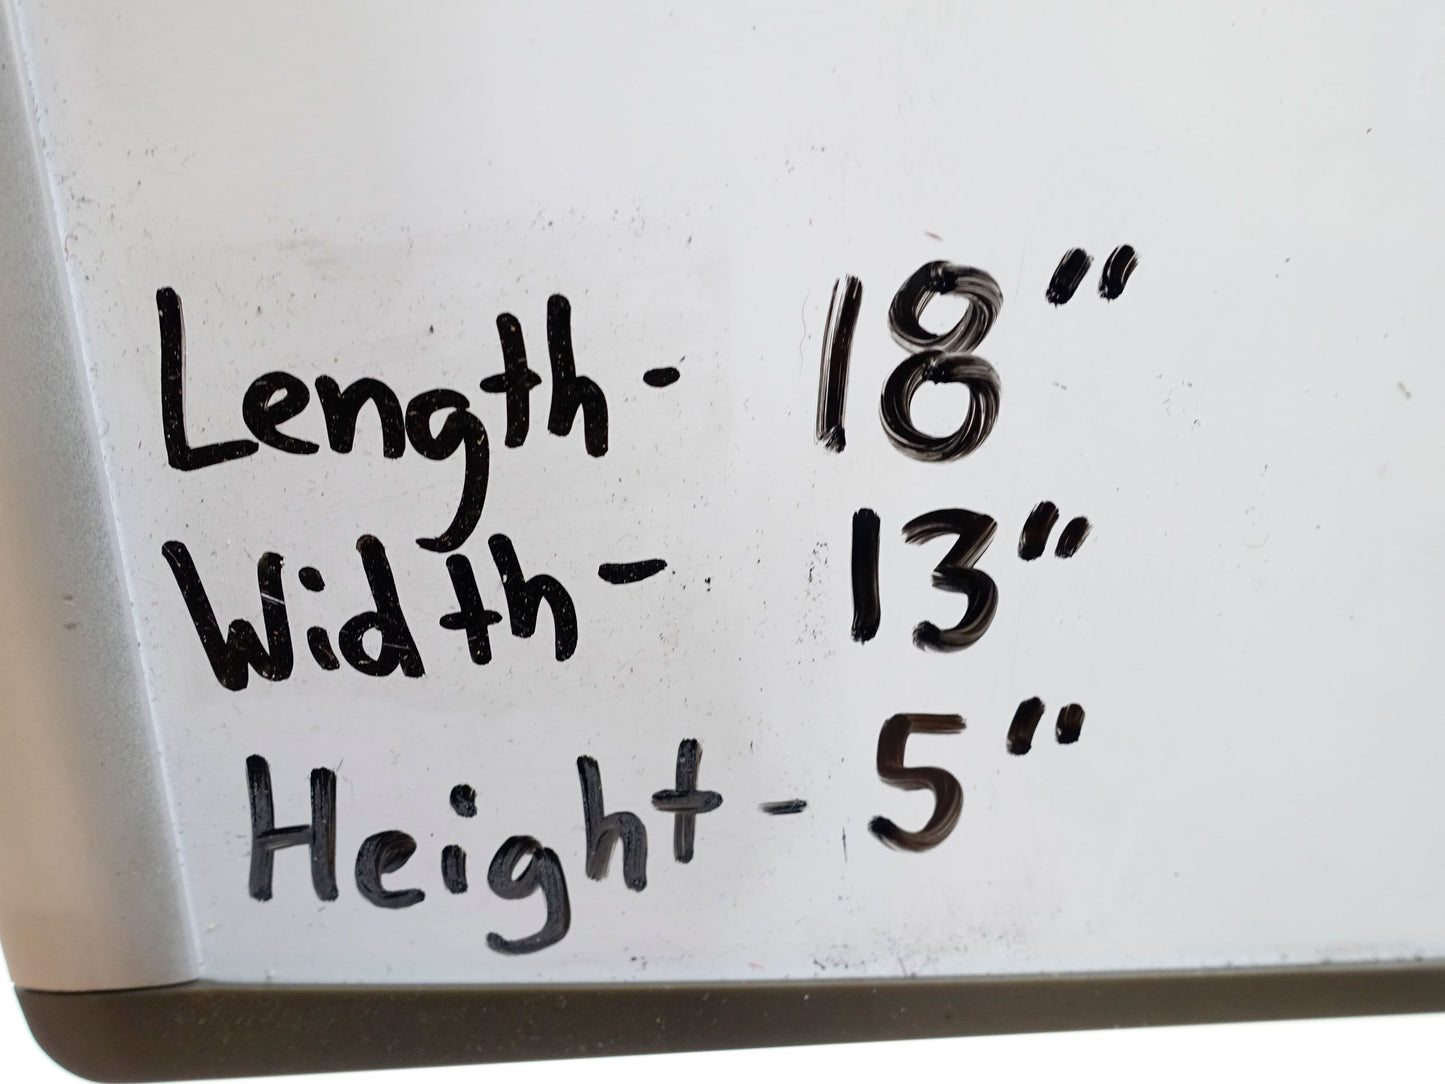 Length- 18"
Width- 13"
Height- 5"